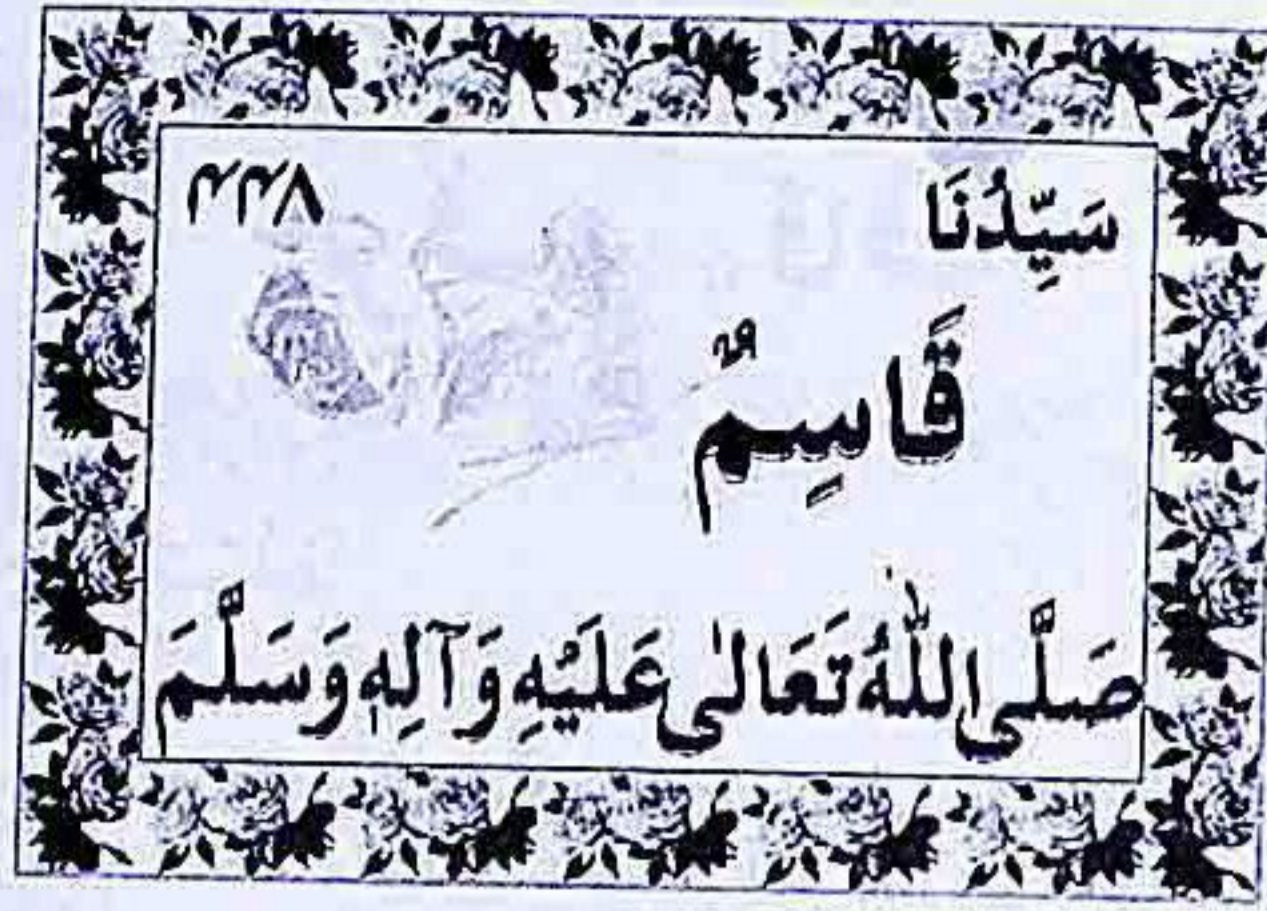 سَيِّدُنَا ۴۴۸
قَاسِمٌ
صَلَّی اللّٰهُ تَعَالٰی عَلَيْهِ وَآلِهٖ وَسَلَّمَ